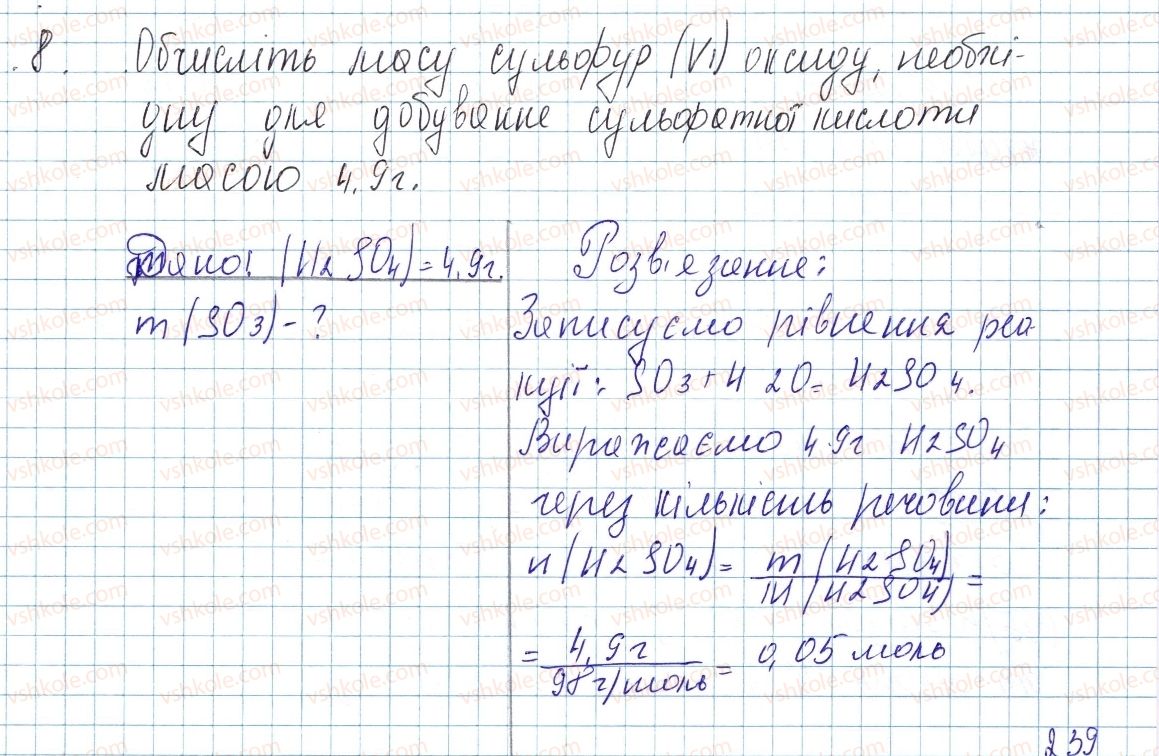 8. Обчисліть масу сульфур (VI) оксиду, необхі-
дну для добування сульфатної кислоти
масою 4,9г.
Дано: (H2SO4)=4,9г.
m(SO3)-?
Розв'язання:
Записуємо рівняння реа-
кції: SO3+H2O=H2SO4.
Виражаємо 4.9г H2SO4
через кількість речовини:
n(H2SO4)= m(H2SO4)
M(H2SO4) =
= 4,9г
98г/моль = 0,05 моль
239